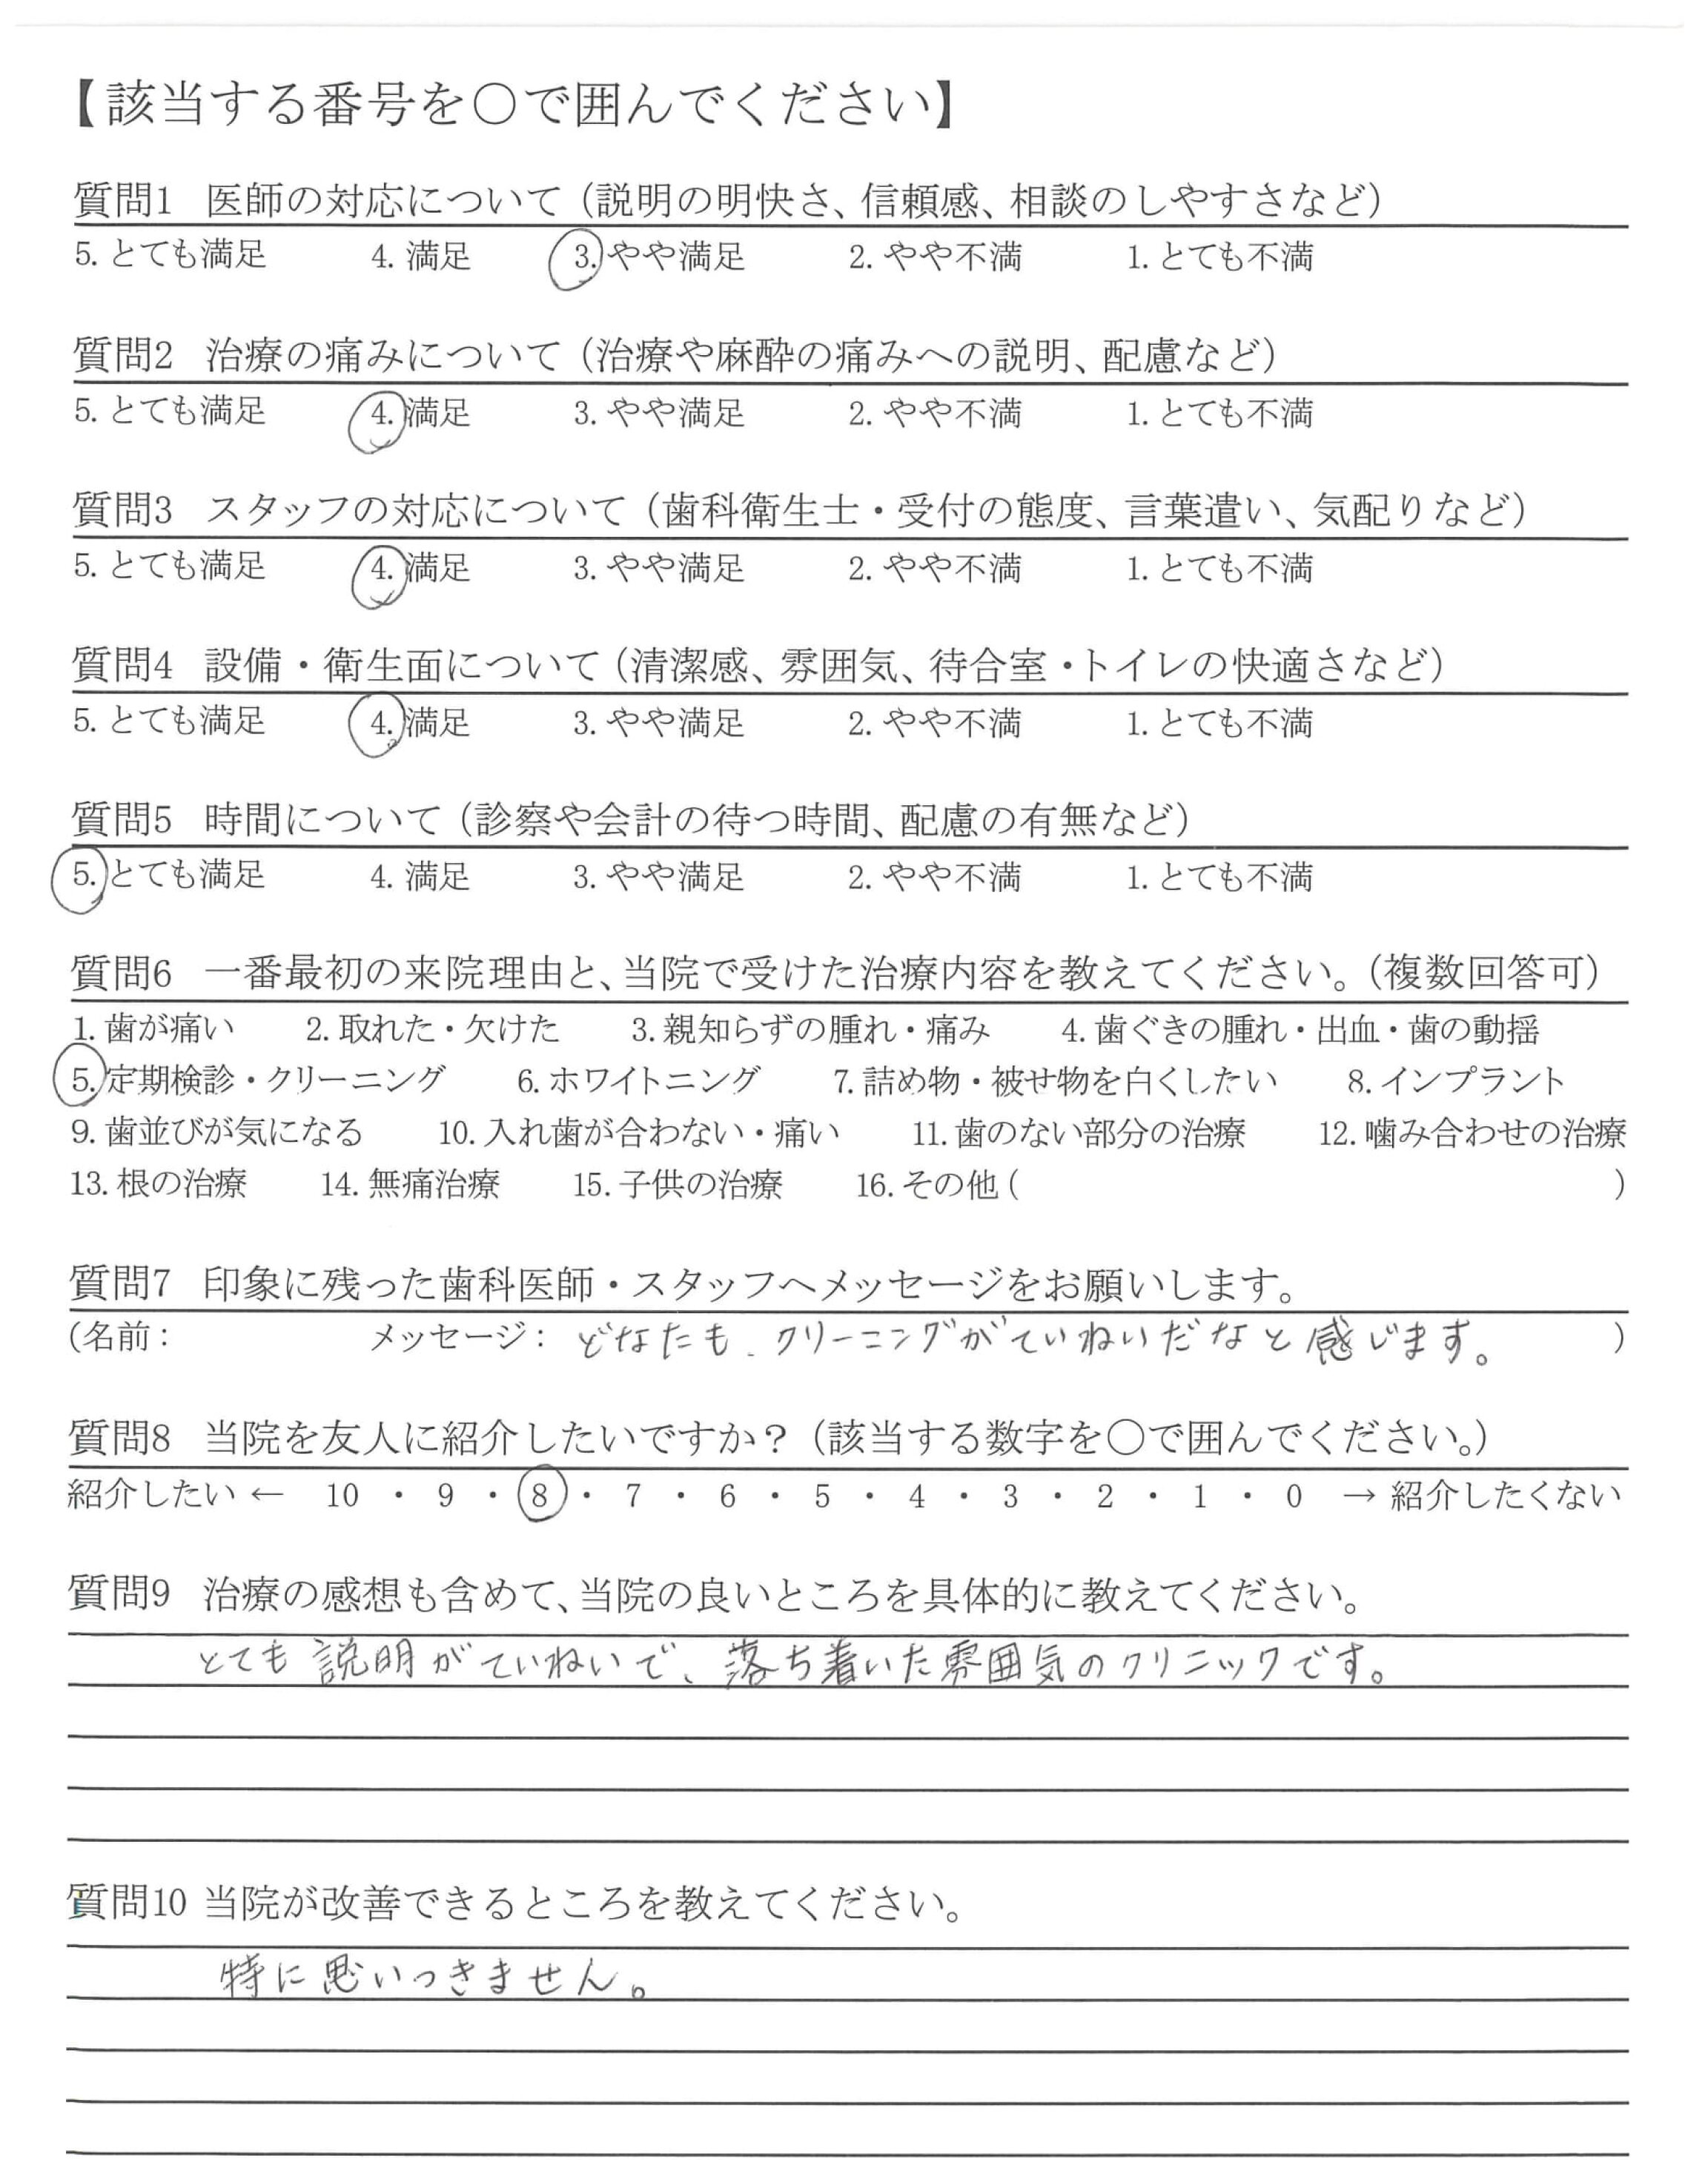 【該当する番号を〇で囲んでください】
質問1 医師の対応について（説明の明快さ、信頼感、相談のしやすさなど）
5. とても満足 4. 満足 3. やや満足 2. やや不満 1. とても不満
質問2 治療の痛みについて（治療や麻酔の痛みへの説明、配慮など）
5. とても満足 4. 満足 3. やや満足 2. やや不満 1. とても不満
質問3 スタッフの対応について（歯科衛生士・受付の態度、言葉遣い、気配りなど）
5. とても満足 4. 満足 3. やや満足 2. やや不満 1. とても不満
質問4 設備・衛生面について（清潔感、雰囲気、待合室・トイレの快適さなど）
5. とても満足 4. 満足 3. やや満足 2. やや不満 1. とても不満
質問5 時間について（診察や会計の待つ時間、配慮の有無など）
5. とても満足 4. 満足 3. やや満足 2. やや不満 1. とても不満
質問6 一番最初の来院理由と、当院で受けた治療内容を教えてください。（複数回答可）
1. 歯が痛い 2. 取れた・欠けた 3. 親知らずの腫れ・痛み 4. 歯ぐきの腫れ・出血・歯の動揺
5. 定期検診・クリーニング 6. ホワイトニング 7. 詰め物・被せ物を白くしたい 8. インプラント
9. 歯並びが気になる 10. 入れ歯が合わない・痛い 11. 歯のない部分の治療 12. 噛み合わせの治療
13. 根の治療 14. 無痛治療 15. 子供の治療 16. その他 ( )
質問7 印象に残った歯科医師・スタッフへメッセージをお願いします。
（名前： メッセージ： どなたも、クリーニングがていねいだなと感じます。 ）
質問8 当院を友人に紹介したいですか？（該当する数字を〇で囲んでください。）
紹介したい ← 10 ・ 9 ・ 8 ・ 7 ・ 6 ・ 5 ・ 4 ・ 3 ・ 2 ・ 1 ・ 0 → 紹介したくない
質問9 治療の感想も含めて、当院の良いところを具体的に教えてください。
とても説明がていねいで、落ち着いた雰囲気のクリニックです。
質問10 当院が改善できるところを教えてください。
特に思いつきません。